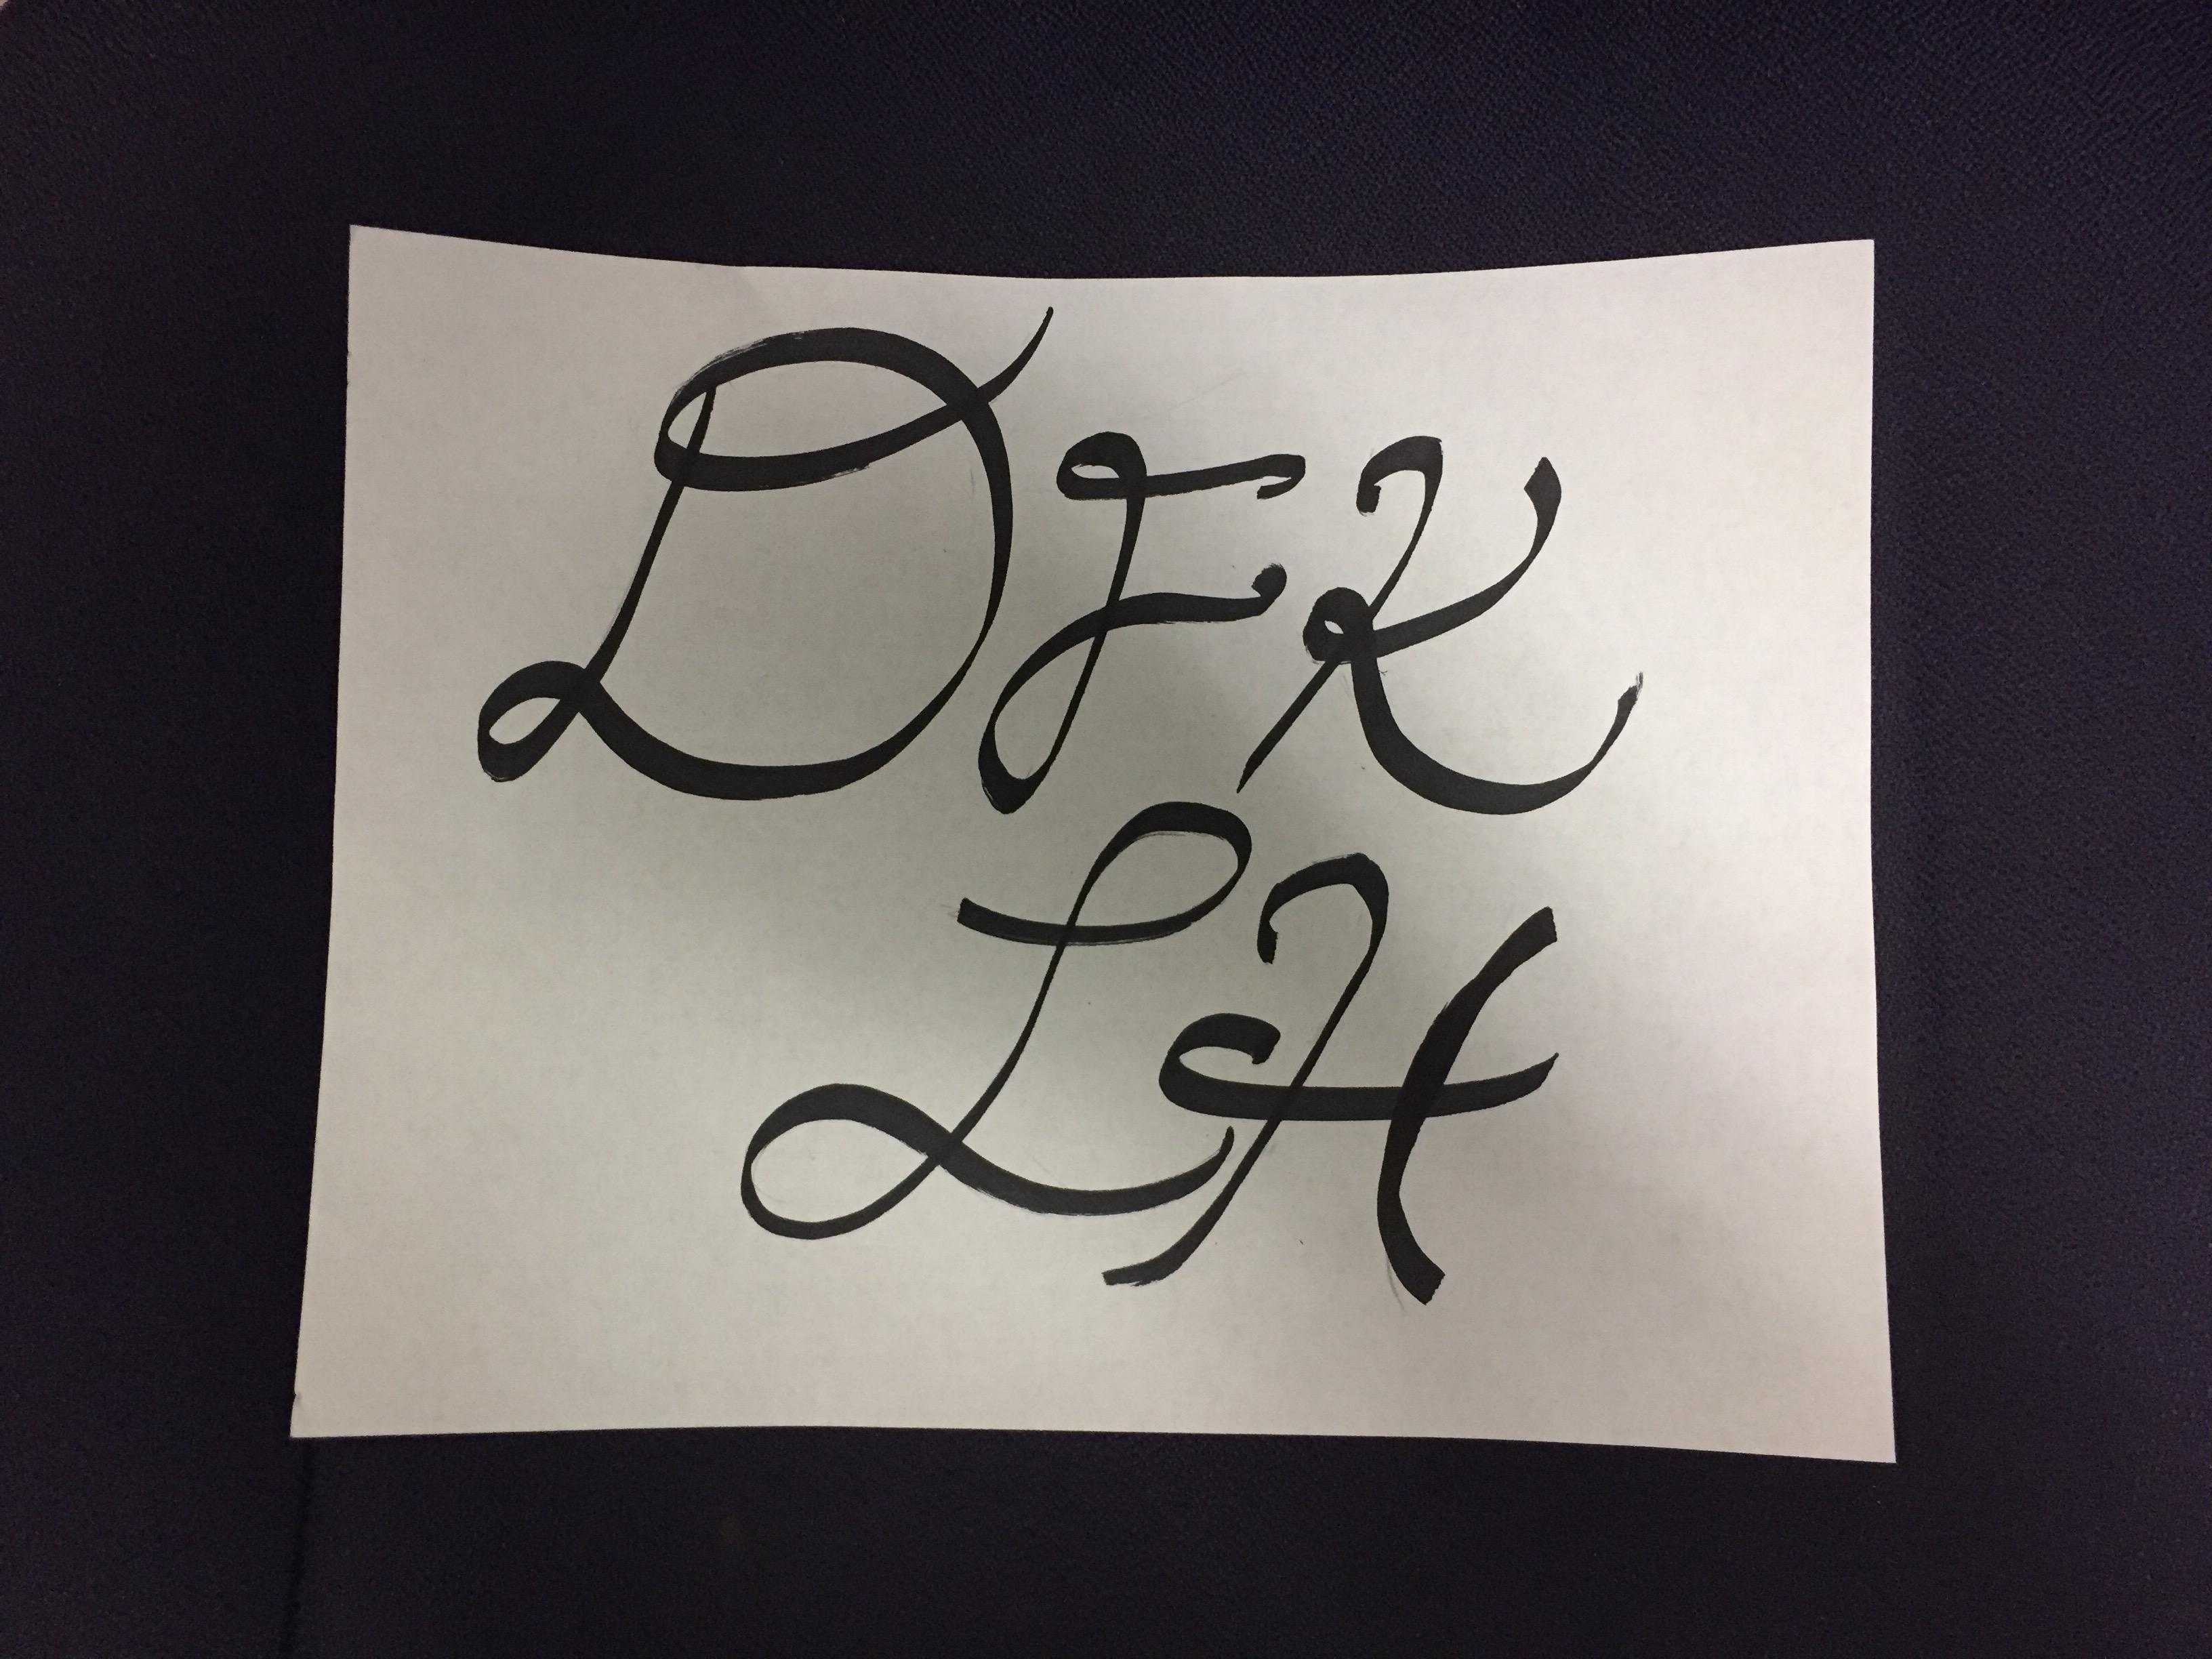 DFK
LH